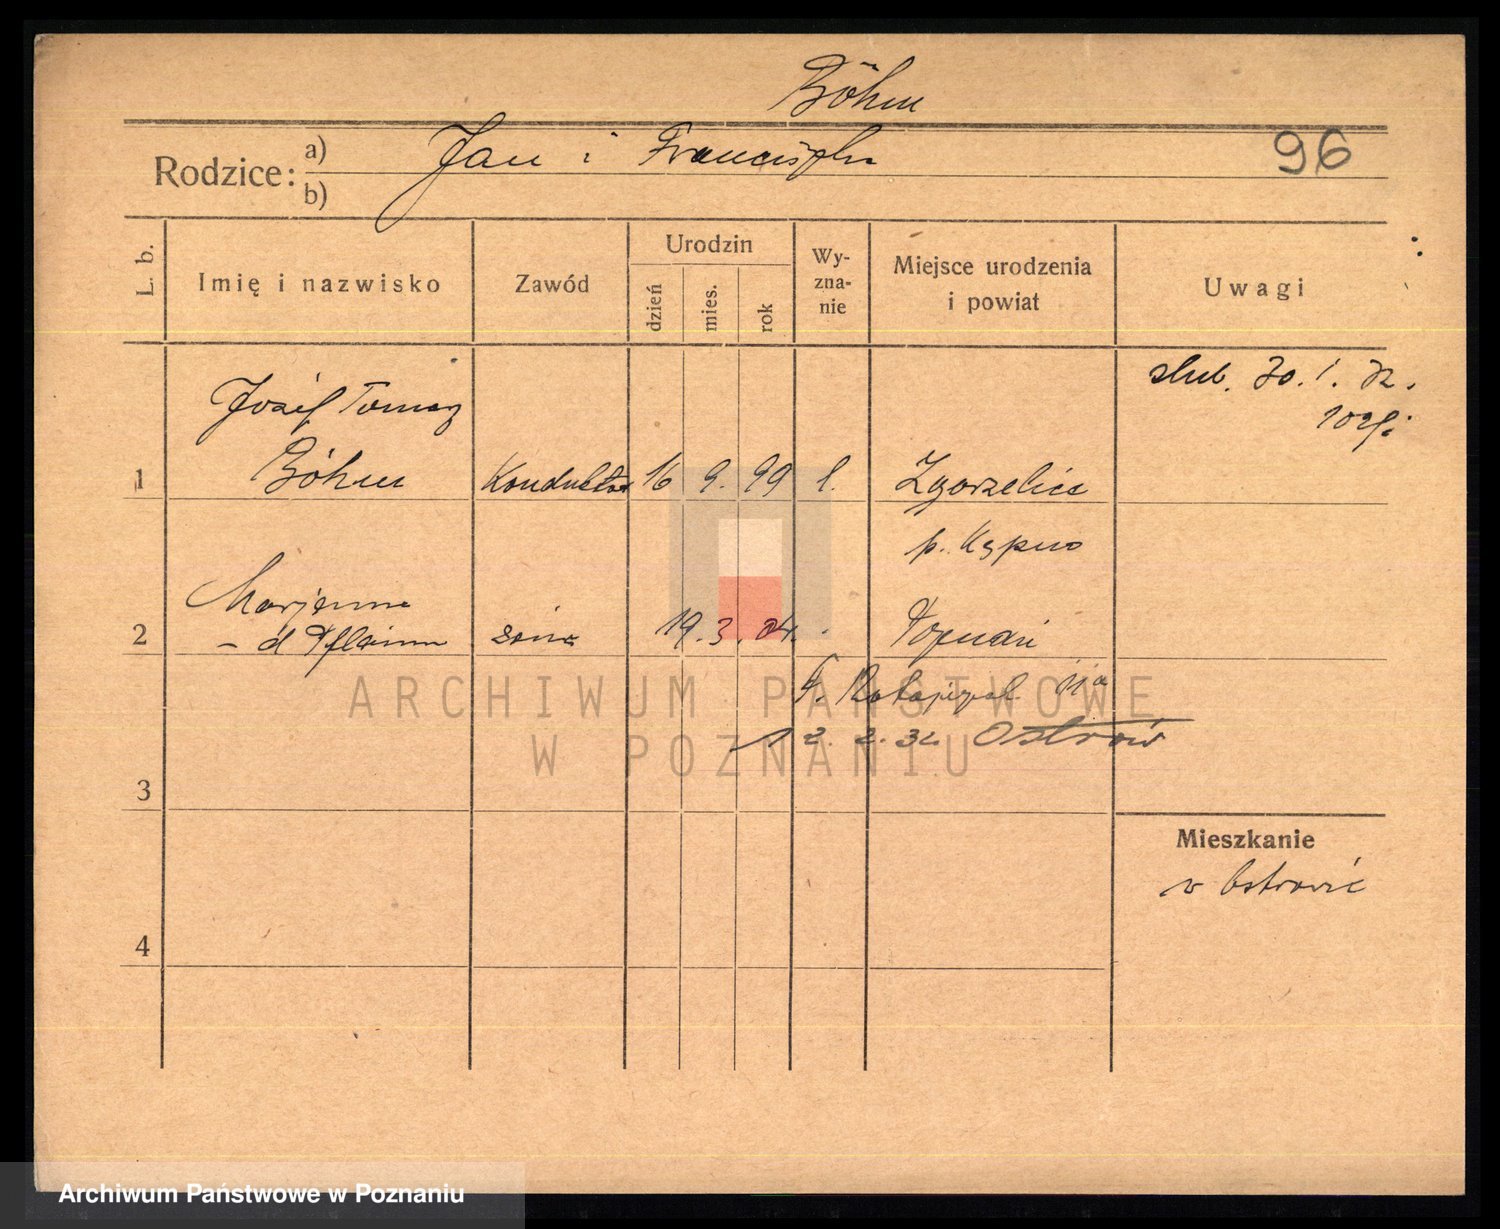 Böhm
Rodzice: a) Jan i Franciszka
b)
96
L. b.
Imię i nazwisko
Zawód
Urodzin
dzień
mies.
rok
Wy-
zna-
nie
Miejsce urodzenia
i powiat
Uwagi
ślub. 30. 1. 32.
Józef Tomasz
1 Böhm Konduktor 16 9. 99 Zgorzelice
p. Kępno
Marjanna
2 - d żona 19. 3. 04. Poznań
ARCHIWUM PAŃSTWOWE
W POZNANIU
11a
12. 2. 32. Ostrów
3
Mieszkanie
w Ostrowie
4
Archiwum Państwowe w Poznaniu